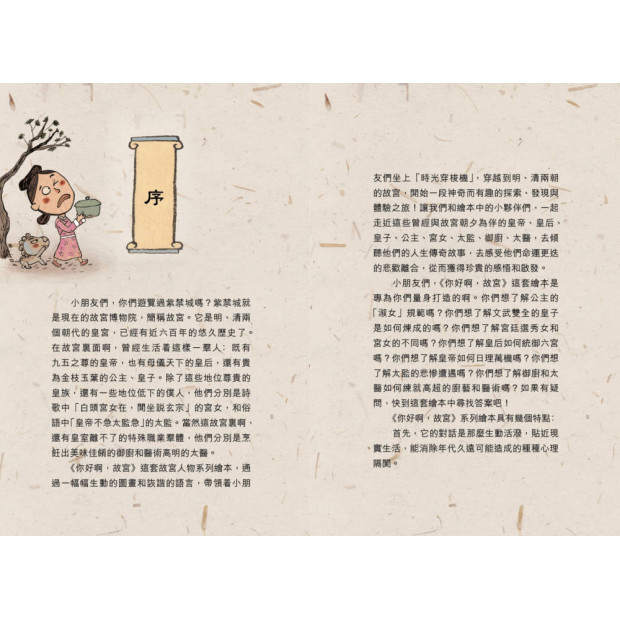 序
小朋友們，你們遊覽過紫禁城嗎？紫禁城就
是現在的故宮博物院，簡稱故宮。它是明、清兩
個朝代的皇宮，已經有近六百年的悠久歷史了。
在故宮裏面啊，曾經生活着這樣一羣人：既有
九五之尊的皇帝，也有母儀天下的皇后，還有貴
為金枝玉葉的公主、皇子。除了這些地位尊貴的
皇族，還有一些地位低下的僕人，他們分別是詩
歌中「白頭宮女在，閒坐説玄宗」的宮女，和俗
語中「皇帝不急太監急」的太監。當然這故宮裏啊，
還有皇室離不了的特殊職業羣體，他們分別是烹
飪出美味佳餚的御廚和醫術高明的太醫。
《你好啊，故宮》這套故宮人物系列繪本，通
過一幅幅生動的圖畫和詼諧的語言，帶領着小朋
友們坐上「時光穿梭機」，穿越到明、清兩朝
的故宮，開始一段神奇而有趣的探索、發現與
體驗之旅！讓我們和繪本中的小夥伴們，一起
走近這些曾經與故宮朝夕為伴的皇帝、皇后、
皇子、公主、宮女、太監、御廚、太醫，去傾
聽他們的人生傳奇故事，去感受他們命運更迭
的悲歡離合，從而獲得珍貴的感悟和啟發。
小朋友們，《你好啊，故宮》這套繪本是
專為你們量身打造的啊。你們想了解公主的
「淑女」規範嗎？你們想了解文武雙全的皇子
是如何煉成的嗎？你們想了解宮廷選秀女和
宮女的不同嗎？你們想了解皇后如何統御六宮
嗎？你們想了解皇帝如何日理萬機嗎？你們想
了解太監的悲慘遭遇嗎？你們想了解御廚和太
醫如何練就高超的廚藝和醫術嗎？如果有疑
問，快到這套繪本中尋找答案吧！
《你好啊，故宮》系列繪本具有幾個特點：
首先，它的對話是那麼生動活潑，貼近現
實生活，能消除年代久遠可能造成的種種心理
隔閡。